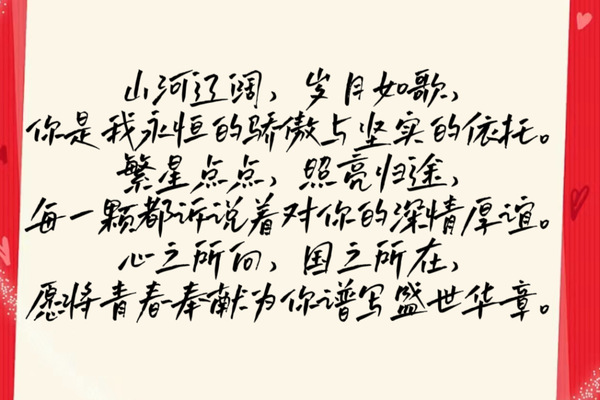 山河辽阔，岁月如歌，
你是我永恒的骄傲与坚实的依托。
繁星点点，照亮归途，
每一颗都诉说着对你的深情厚谊。
心之所向，国之所在，
愿将青春奉献为你谱写盛世华章。